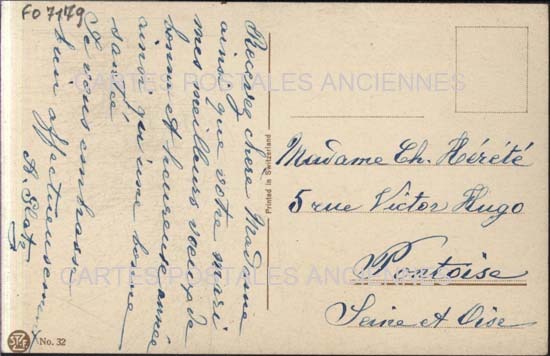 FO 7179
Recevez chère Madame
ainsi que votre mari
mes meilleurs voeux de
bonne et heureuse année
ainsi qu'une bonne
santée
Je vous embrasse
bien affectueusement
Printed in Switzerland
Madame Ch. Hérété
5 rue Victor Hugo
Pontoise
Seine et Oise
No. 32
CARTES POSTALES ANCIENNES
CARTES POSTALES ANCIENNES